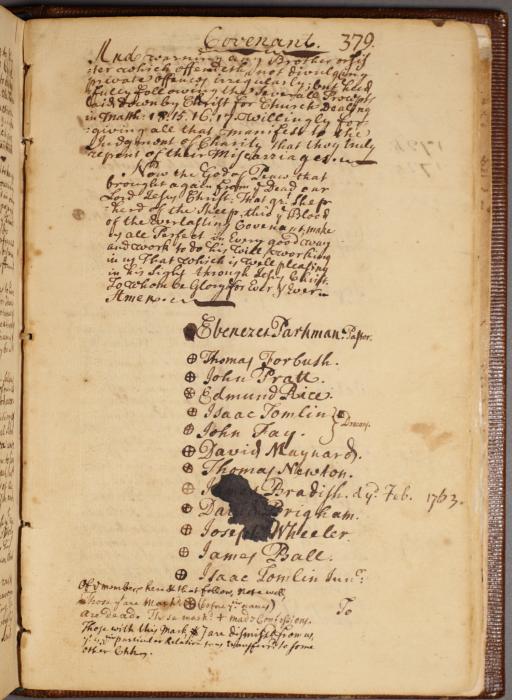 Covenant. 379.
And warning any Brother or Sis
ter which offendeth, not divulging
private offences irregularly, but heed
fully following the Severall Precepts
laid down by Christ for Church Dealing
in Matth: 18. 15, 16, 17. Willingly for
giving all that manifest to the
Judgment of Charity that they truly
repent of their Miscarriages.
Now the God of Peace that
brought again from ye Dead our
Lord Jesus Christ, That gr. Shep
herd of the Sheep, thro ye Blood
of the Everlasting Covenant, make
us all Perfect in Every good way
and work to do his Will, working
in us That which is well pleasing
in his Sight through Jesus Christ.
To whom be Glory for Ever & Ever
Amen.
Ebenezer Parkman. Pastor.
Thomas Forbush.
John Pratt.
Edmund Rice.
Isaac Tomlin
John Fay. } Deacons.
David Maynard.
Thomas Newton.
Bradish. dyd. Feb. 1763.
David Brigham.
Joseph Wheeler.
James Ball.
Isaac Tomlin Junr.
To
Of ye members here & that follow, Note well
Those yt are Mark'd ⊕ (before yr names)
are dead. Those mark'd + made Confessions.
Those with this Mark are dismiss'd from us,
yr particular Relation being transferr'd to some
other Chh.